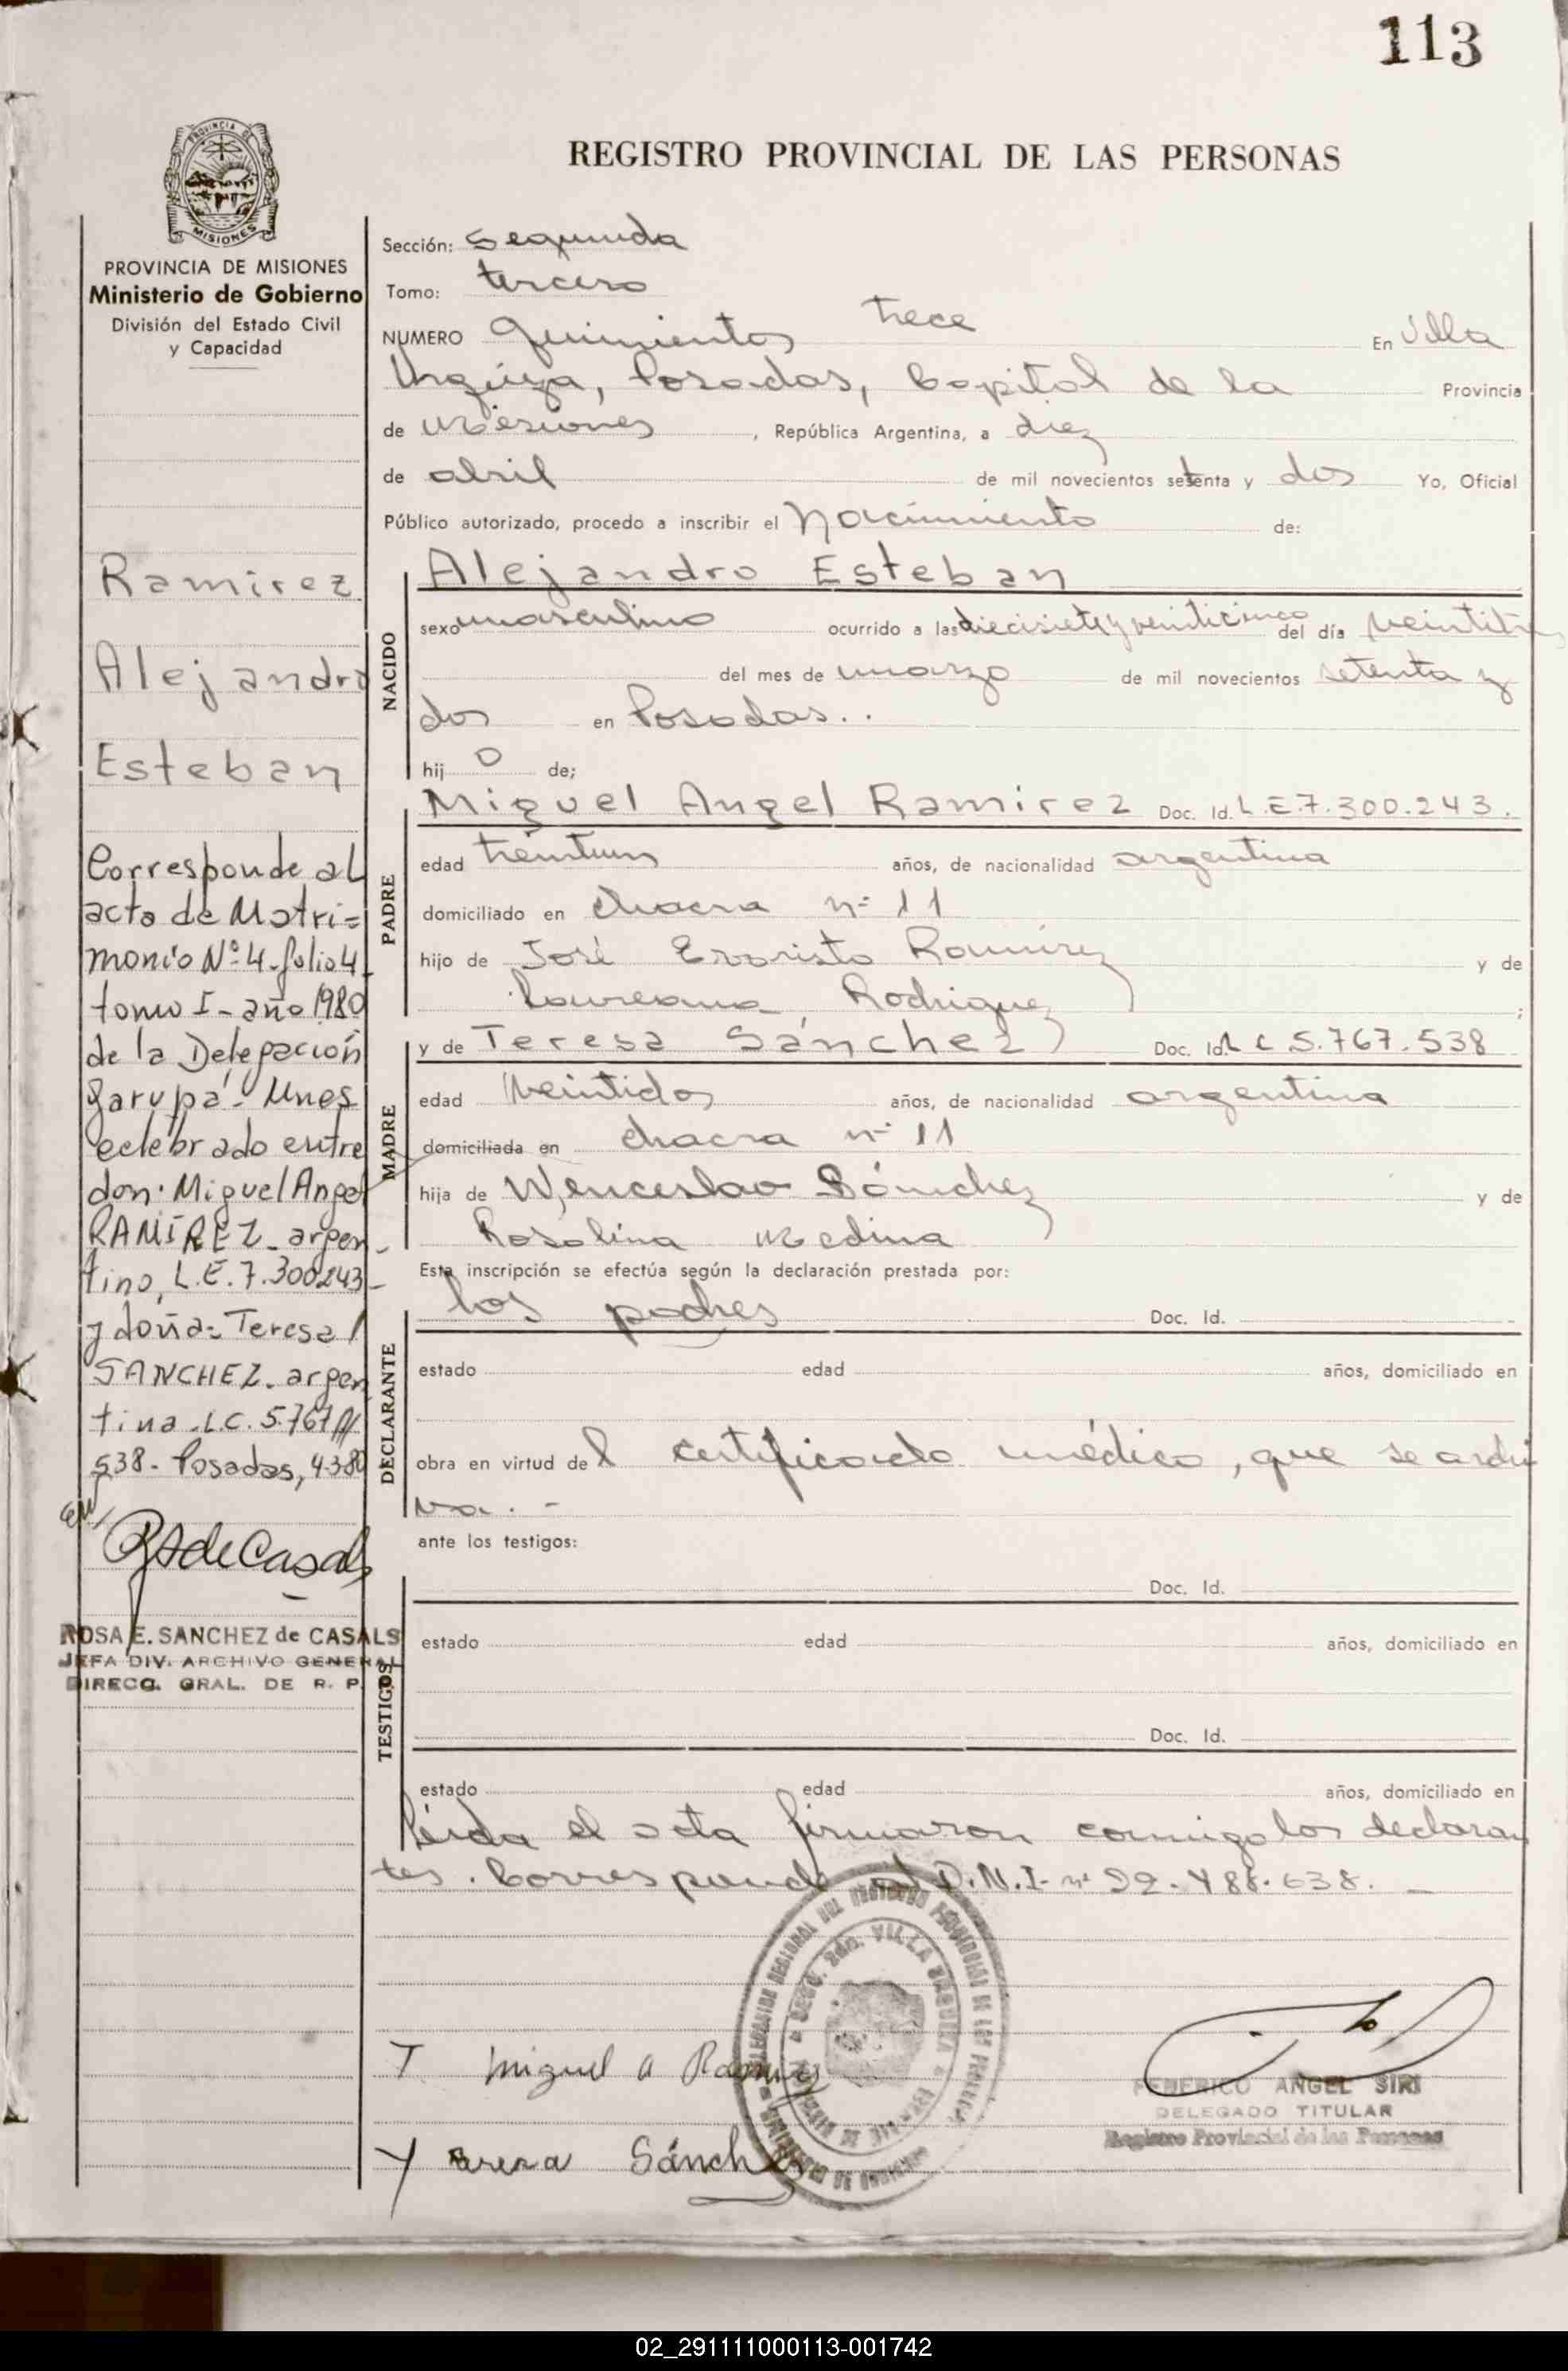 113
REGISTRO PROVINCIAL DE LAS PERSONAS
PROVINCIA DE
MISIONES
PROVINCIA DE MISIONES
Ministerio de Gobierno
División del Estado Civil
y Capacidad
Ramirez
Alejandro
Esteban
Corresponde al
acta de Matri=
monio Nº 4 - folio 4
tomo I - año 1980
de la Delegación
Garupá - Mnes
celebrado entre
don: Miguel Angel
RAMÍREZ - argen-
tino, L.E. 7.300243-
y doña: Teresa
SANCHEZ - argen
tina - L.C. 5.767
538 - Posadas, 4-3-80
RSdeCasals
ROSA E. SANCHEZ de CASALS
JEFA DIV. ARCHIVO GENERAL
DIRECC. GRAL. DE R. P.
Sección: segunda
Tomo: tercero
NUMERO quinientos trece En Villa
Urquiza, Posadas, Capital de la Provincia
de Misiones, República Argentina, a diez
de abril de mil novecientos setenta y dos Yo, Oficial
Público autorizado, procedo a inscribir el Nacimiento de:
NACIDO
Alejandro Esteban
sexo masculino ocurrido a las diecisiete y veinticinco del día veintitres
del mes de marzo de mil novecientos setenta y
dos en Posadas..
hijo de;
PADRE
Miguel Angel Ramirez Doc. Id. L.E.7.300.243.
edad treintiun años, de nacionalidad argentina
domiciliado en chacra nº 11
hijo de José Evaristo Ramírez y de
Laureana Rodriguez;
MADRE
y de Teresa Sánchez Doc. Id. L C 5.767.538
edad veintidos años, de nacionalidad argentina
domiciliada en chacra nº 11
hija de Wenceslao Sánchez y de
Rosalina Medina
Esta inscripción se efectúa según la declaración prestada por:
DECLARANTE
los padres Doc. Id.
estado edad años, domiciliado en
obra en virtud del certificado médico, que se archi
va. -
ante los testigos:
TESTIGOS
Doc. Id.
estado edad años, domiciliado en
Doc. Id.
estado edad años, domiciliado en
Leída el acta firmaron conmigo los declaran
tes. Corresponde al D.N.I- nº 22.488.638. -
Miguel A Ramirez
Teresa Sánchez
FEDERICO ANGEL SIRI
DELEGADO TITULAR
Registro Provincial de las Personas
02_291111000113-001742